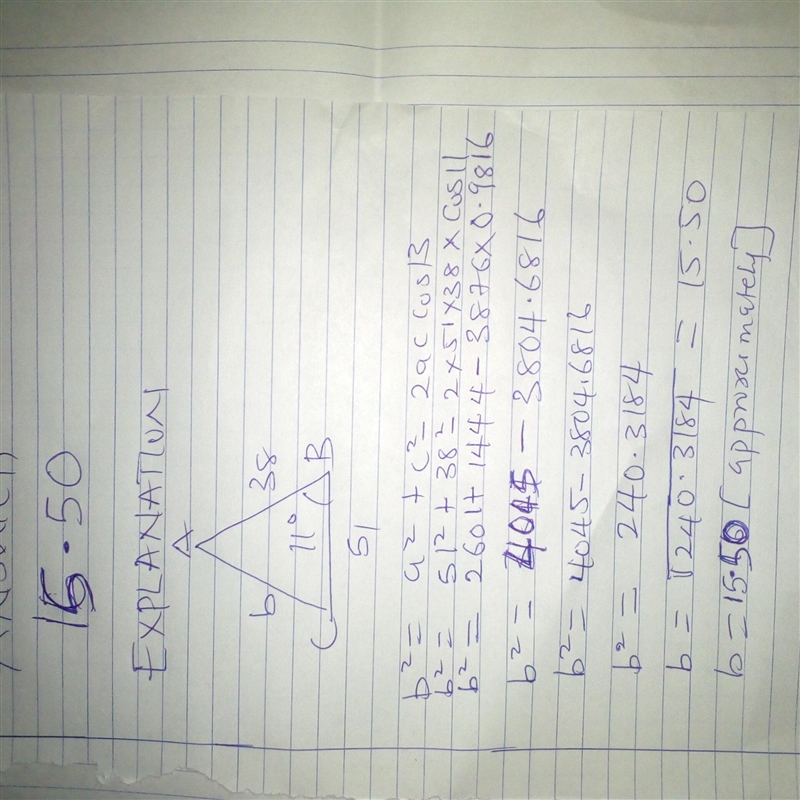 15.50
EXPLANATION
A
b
38
11°
C
B
51
b² = a² + c² - 2ac cosB
b² = 51² + 38² = 2x51x38 x cos11
b² = 2601 + 1444 - 3876x0.9816
b² = 4045 - 3804.6816
b² = 4045 - 3804.6816
b² = 240.3184
b = √240.3184 = 15.50
b = 15.50 [approximately]